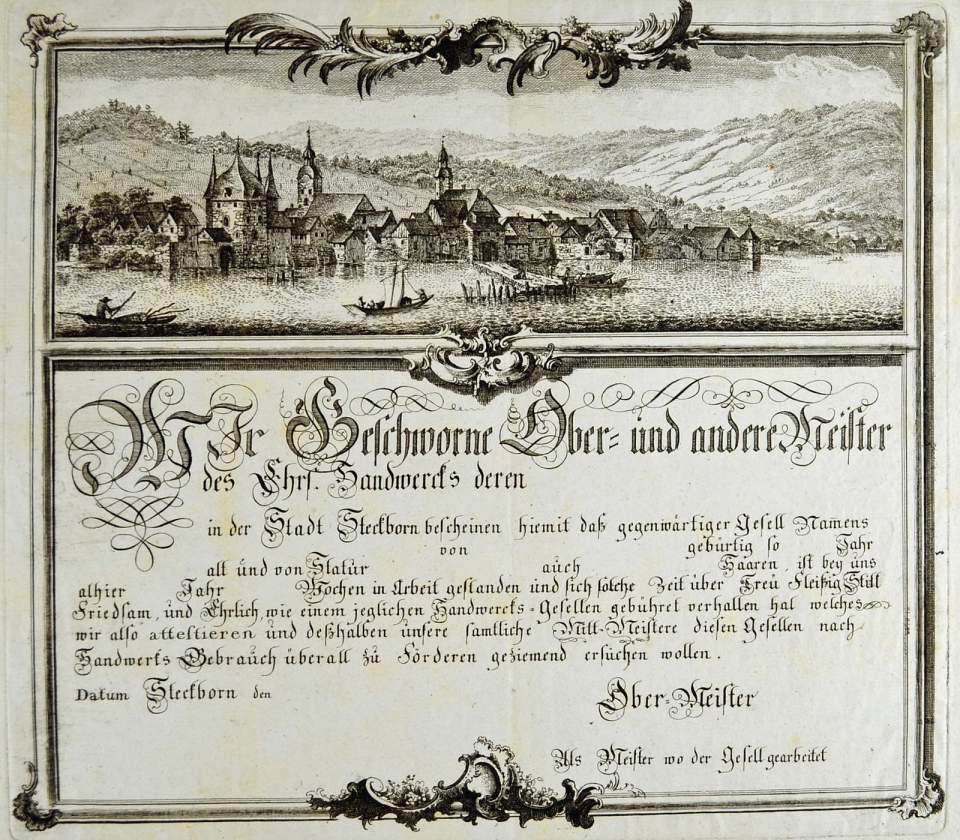 Wir Geschworne Ober= und andere Meister
des Ehrs. Handwercks deren
in der Stadt Steckborn bescheinen hiemit daß gegenwärtiger Gesell Namens
von gebürtig so Jahr
alt und von Statur auch Haaren, ist bey uns
alhier Jahr Wochen in Arbeit gestanden und sich solche Zeit über Treu Fleißig Still
Friedsam, und Ehrlich, wie einem jeglichen Handwercks=Gesellen gebühret verhalten hat welches
wir also attestieren und deßhalben unsere samtliche Mitt=Meistere diesen Gesellen nach
Handwerks Gebrauch überall zu Förderen geziemend ersuchen wollen.
Datum Steckborn den
Ober=Meister
Als Meister wo der Gesell gearbeitet